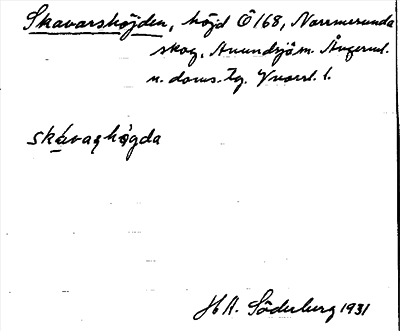 Skavarshöjden, höjd Ö 168, Norrmesunda
skog, Anundsjö sn. Ångerml.
n. doms. tg. V norrl. l.
skávaṣhö̀gda
H A. Söderberg 1931